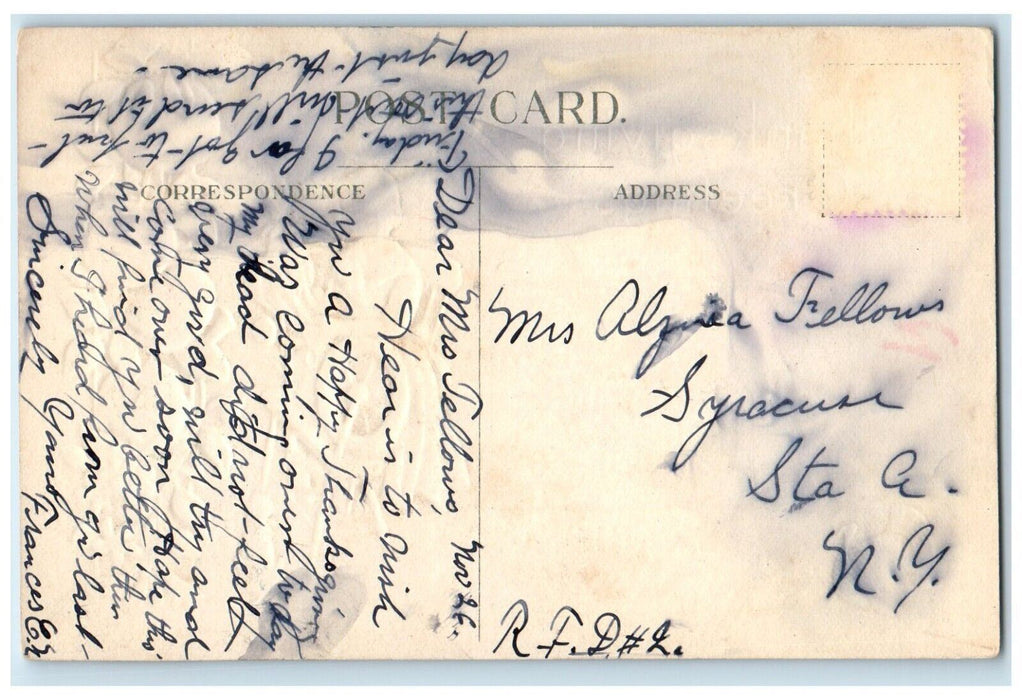 POST CARD.
CORRESPONDENCE
ADDRESS
Nov 26.
Dear Mrs Fellows,
Hear is to wish
you a Happy Thanksgiving
Was coming over to day
my head did not feel
very good, will try and
come over soon. Hope this
will find you better then
when I heard from you last
Sincerely Yours Frances E.
Friday. I for got to put
this will send it to
day just the same.
Mrs Fellows
Syracuse
Sta A.
N.Y.
R.F.D#2.